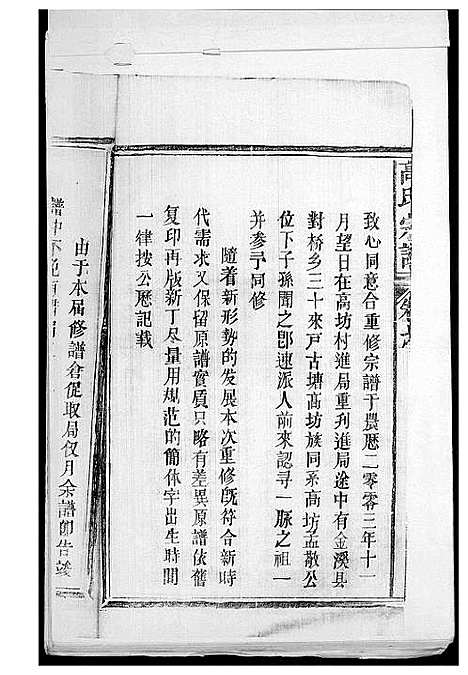 高氏宗譜
致心同意合重修宗譜于農曆二零零三年十一
月望日在高坊村進局重刋進局途中有金溪县
對桥乡三十來戸古塘高坊族同系高坊孟散公
位下子孫聞之卽速派人前來認寻一脉之祖一
并参予同修
隨着新形勢的发展本次重修旣符合新時
代需求又保留原譜實質只略有差異原譜依舊
复印再版新丁尽量用規范的简体字出生時間
一律按公歷記載
由于本届修譜倉促取局仅月余譜卽告竣
譜中不免有